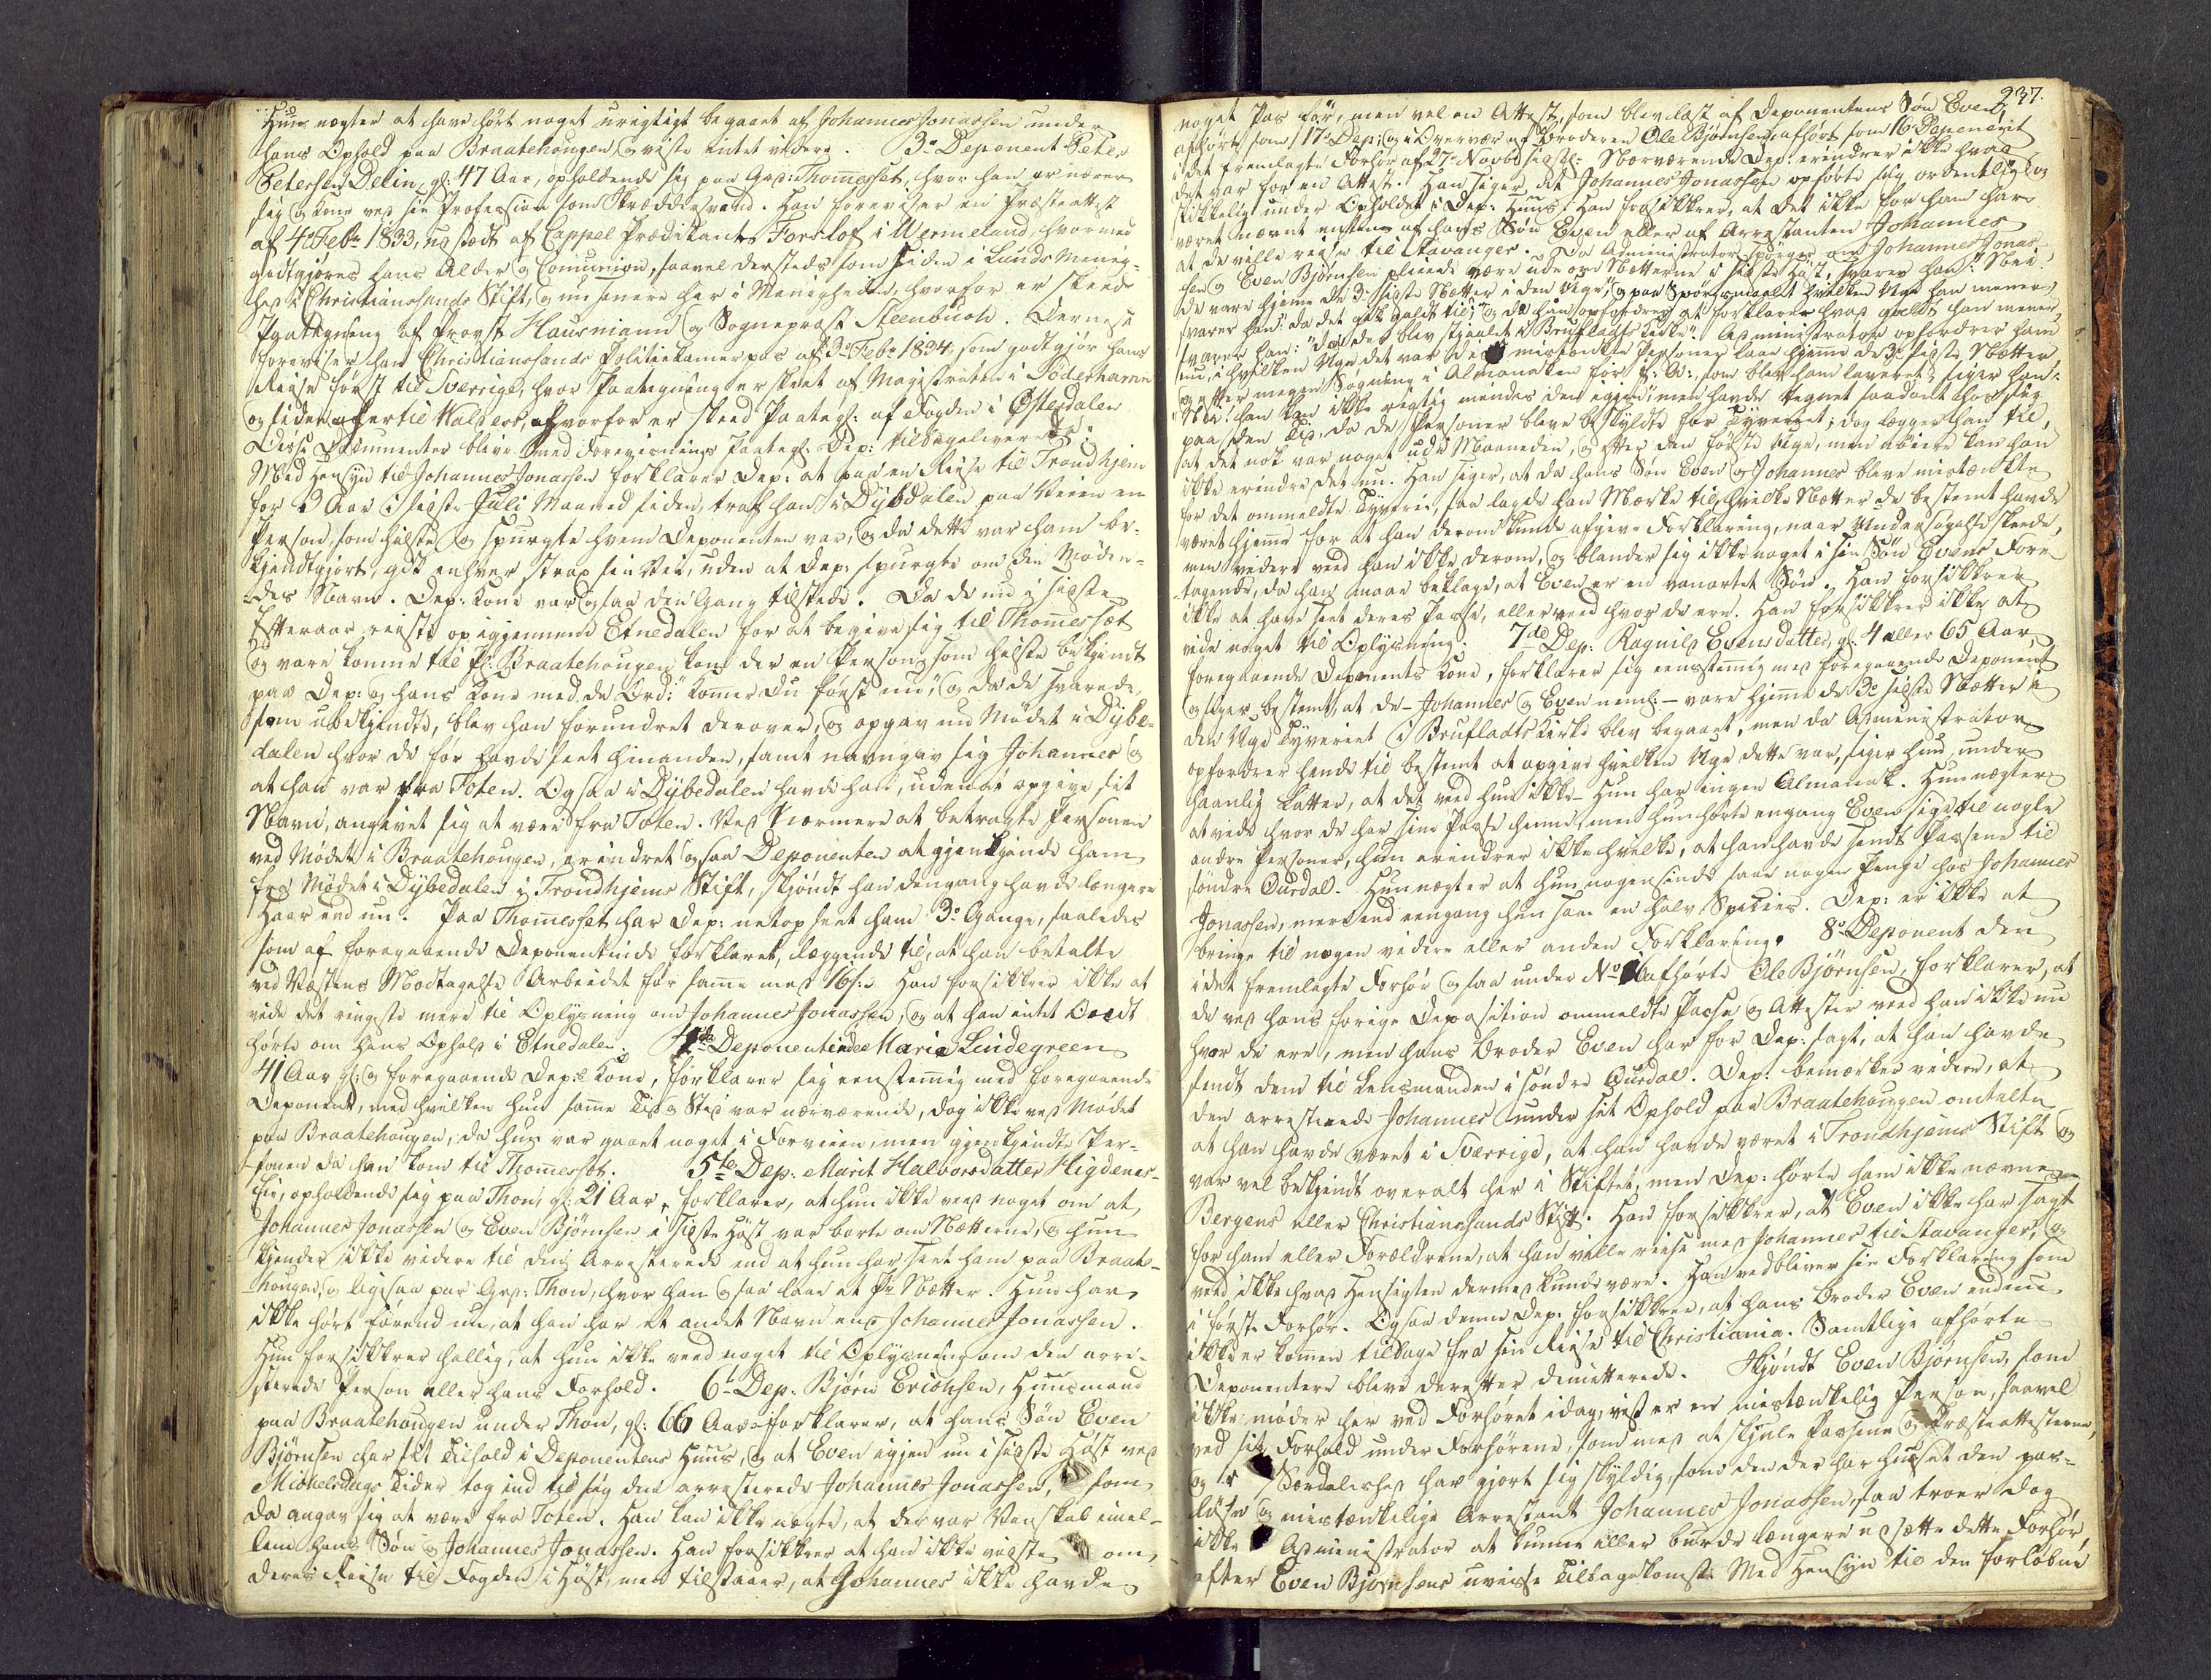 Hun nægter at have hørt noget urigtigt begaaet af Johannes Jonassen under
hans Ophold paa Braatehougen og viste intet videre. 3die Deponent Peter
Petersen Delin, gl: 47 Aar, opholdende sig paa Grd: Thomesset, hvor han ernærer
sig og Kone ved sin Profession som Skræddersvend. Han foreviser en Præsteattest
af 4de Febr 1833, udstædt af Cappel Prædikant Forslof i Wermeland, hvormed
godtgjøres hans Alder og Comunion, saavel dersteds som siden i Lunds Menig-
hed i Christiansands Stift, og nu senere her i Menigheden, hvorfor er skeede
Paategning af Provst Hausmann og Sognepræst Steenbuch. Dernest
foreviser han Christianssands Politiekamerpas af 3de Febr 1834, som godtgjør hans
Reise først til Sverrige, hvor Paategning er skeet af Magistraten i Söderhamn
og siden hertil Walders, hvorfor er skeed Paategn: af Fogden i Østerdalen
Disse Documenter bleve med Forevisnings Paategn: Dep: tilbageleverede.
Med Hensyn til Johannes Jonassen forklarer Dep: at paa en Reise til Trondhjem
for 2 Aar i sidste Juli Maaned siden, traf han i Dybdalen paa Veien en
Person, som hilste og spurgte hvem Deponenten var, og da dette var ham be-
kjendtgjort, gik enhver strax sin Vei, uden at Dep: spurgte om den Møden-
des Navn. Dep: Kone var ogsaa den Gang tilstede. Da de nu i sidste
Efteraar reiste op igjennem Etnedalen for at begive sig til Thomesset
og vare komne til Pl: Braatehougen kom der en Person, som hilste bekjendt
paa Dep: og hans Kone med de Ord: "kommer Du først nu", og da de svarede
som ubekjendte, blev han forundret derover, og opgav nu Mødet i Dybe-
dalen hvor de før havde seet hinanden, samt navngav sig Johannes og
at han var fra Toten. Ogsaa i Dybedalen havde han, uden at opgive sit
Navn, angivet sig at være fra Toten. Ved nærmere at betragte Personen
ved Mødet i Braatehougen, erindret ogsaa Deponenten at gjenkjende ham
fra Mødet i Dybedalen i Trondhjems Stift, skjøndt han dengang havde længere
Haar end nu. Paa Thomesset har Dep: netop seet ham 3de Gange, saaledes
som af foregaaende Deponentinde forklaret, læggende til, at han betalte
ved Vestens Modtagelse Arbeidet for samme med 16 s:. Han forsikkrer ikke at
vide det ringeste mere til Oplysning om Johannes Jonassen, og at han intet Ondt
hørte om hans Ophold i Etnedalen. 4de Deponentinde Maria Lindegreen
41 Aar gl: og foregaaende Dep:s Kone, forklarer sig eenstemig med foregaaende
Deponent, med hvilken hun samme Tid og Sted var nærværende, dog ikke ved Mødet
paa Braatehougen, da hun var gaaet noget i Forveien, men gjenkjendte Per-
sonen da han kom til Thomesset. 5te Dep: Marit Halvorsdatter Higdenes-
eie, opholdende sig paa Thon, gl: 21 Aar, forklarer, at hun ikke veed noget om at
Johannes Jonassen og Even Bjørnsen i sidste Høst var borte om Nætterne, og hun
kjender ikke videre til den Arresterede end at hun har seet ham paa Braate-
hougen, og ligesaa paa Grd: Thon, hvor han ogsaa laae et Pr Nætter. Hun har
ikke hørt førend nu, at han har et andet Navn end Johannes Jonassen.
Hun forsikkrer hellig, at hun ikke veed noget til Oplysning om den arre-
sterede Person eller hans Forhold. 6te Dep: Bjørn Erichsen, Huusmand
paa Braatehougen under Thon, gl: 66 Aar forklarer, at hans Søn Even
Bjørnsen har sit Tilhold i Deponentens Huus, og at Even igjen nu i sidste Høst ved
Mickelsdags Tider tog ind til sig den arresterede Johannes Jonassen, som
da angav sig at være fra Toten. Han kan ikke nægte, at der var Venskab imel-
lem hans Søn og Johannes Jonassen. Han forsikkrer at han ikke vidste om
deres Reise til Fogden i Høst, men tilstaaer, at Johannes ikke havde
237.
noget Pas før, men vel en Attest, som blev læst af Deponentens Søn Even,
afhørt som 17de Dep: og i Overvær af Broderen Ole Bjørnsen, afhørt som 16de Deponent
i det fremlagte Forhør af 27de Novbr sidstl: Nærværende Dep. erindrer ikke hvad
det var for en Attest. Han siger, at Johannes Jonassen opførte sig ordentlig og
skikkelig under Opholdet i Dep: Huus. Han forsikkrer, at det ikke for ham har
været nævnt enten af hans Søn Even eller af Arrestanten Johannes
at de ville reise til Stavanger. Da Administrator spørger om Johannes Jonas-
sen og Even Bjørnsen pleiede være ude om Nætterne i sidste Høst, svarer han: "Nei!
de vare hjeme de 3de sidste Nætter i den Uge," og paa Spørgsmaalet hvilken Uge han mener,
svarer han: "da det gik galdt til," og da han opfordres at forklare hvad galdt han mener,
svarer han: "da der blev stjaalet i Brufladts Kirke". Administrator opfordrer ham
nu, i hvilken Uge det var de mistænkte Personer laae hjeme de 3de sidste Nætter
og efter megen Søgning i Almanaken for f: A:, som blev ham leveret, siger han:
"Nei! han kan ikke rigtig mindes den igjen", men havde tegnet saadant hos sig
paa den Tid, da de Personer bleve beskyldte for Tyveriet; dog lægger han til,
at det nok var noget ud i Maaneden, og efter den første Uge, men nøiere kan han
ikke erindre det nu. Han siger, at da hans Søn Even og Johannes bleve mistænkte
for det ommeldte Tyverie, saa lagde han Mærke til, hvilke Nætter de bestemt havde
været hjeme for at han derom kunde afgive Forklaring, naar Undersøgelse skeede,
men videre veed han ikke derom, og blander sig ikke noget i sin Søn Evens Fore-
tagende, da han maae beklage, at Even er en vanartet Søn. Han forsikkrer
ikke at have seet deres Passe, eller veed hvor de ere. Han forsikkrer ikke at
vide noget til Oplysning. 7de Dep: Ragnild Evensdatter, gl: 4 eller 65 Aar,
foregaaende Deponents Kone, forklarer sig eensstemig med foregaaende Deponent
og siger bestemt, at de – Johannes og Even neml: – vare hjeme de 3de sidste Nætter i
den Uge Tyveriet i Brufladts Kirke blev begaaet, men da Administrator
opfordrer hende til bestemt at opgive hvilken Uge dette var, siger hun, under
haanlig Latter, at det veed hun ikke – Hun har ingen Almanak. Hun nægter
at vide hvor de har sine Passe henne, men hun hørte engang Even sige til nogle
andre Personer, hun erindrer ikke hvilke, at han havde sendt Passene til
søndre Ourdal. Hun nægter at hun nogensinde saae nogen Penge hos Johannes
Jonassen, mere end eengang hun saae en halv Specie. Dep: er ikke at
bringe til nogen videre eller anden Forklaring. 8de Deponent den
i det fremlagte Forhør ogsaa under No afhørte Ole Bjørnsen, forklarer, at
de ved hans forrige Deposition ommeldte Passe og Attester veed han ikke nu
hvor de ere, men hans Broder Even har for Dep: sagt, at han havde
sendt dem til Lensmanden i søndre Ourdal. Dep: bemærker videre, at
den arresterede Johannes under sit Ophold paa Braatehougen omtalte
at han havde været i Sverrige, at han havde været i Trondhjems Stift og
var vel bekjendt overalt her i Stiftet, men Dep: hørte ham ikke nævne
Bergens eller Christianssands Stift. Han forsikkrer, at Even ikke har sagt
for ham eller Forældrene, at han ville reise med Johannes til Stavanger, og
veed ikke hvad Hensigten dermed kunde være. Han vedbliver sin Forklaring som
i første Forhør. Ogsaa denne Dep: forsikkrer, at hans Broder Even endnu
ikke er komen tilbage fra sin Reise til Christiania. Samtlige afhørte
Deponentere bleve derefter dimitterede. Skjøndt Even Bjørnsen, som
ikke møder her ved Forhøret idag, vist er en mistænkelig Person, saavel
ved sit Forhold under Forhørene, som med at skjule Passene og Præsteattesterne,
og i Særdeleshed har gjort sig skyldig, som den der har huuset den pas-
løse og mistænkelige Arrestant Johannes Jonassen, saa troer dog
ikke Administrator at kunne eller burde længere udsætte dette Forhør,
efter Even Bjørnsens uvisse Tilbagekomst. Med Hensyn til den forløbne